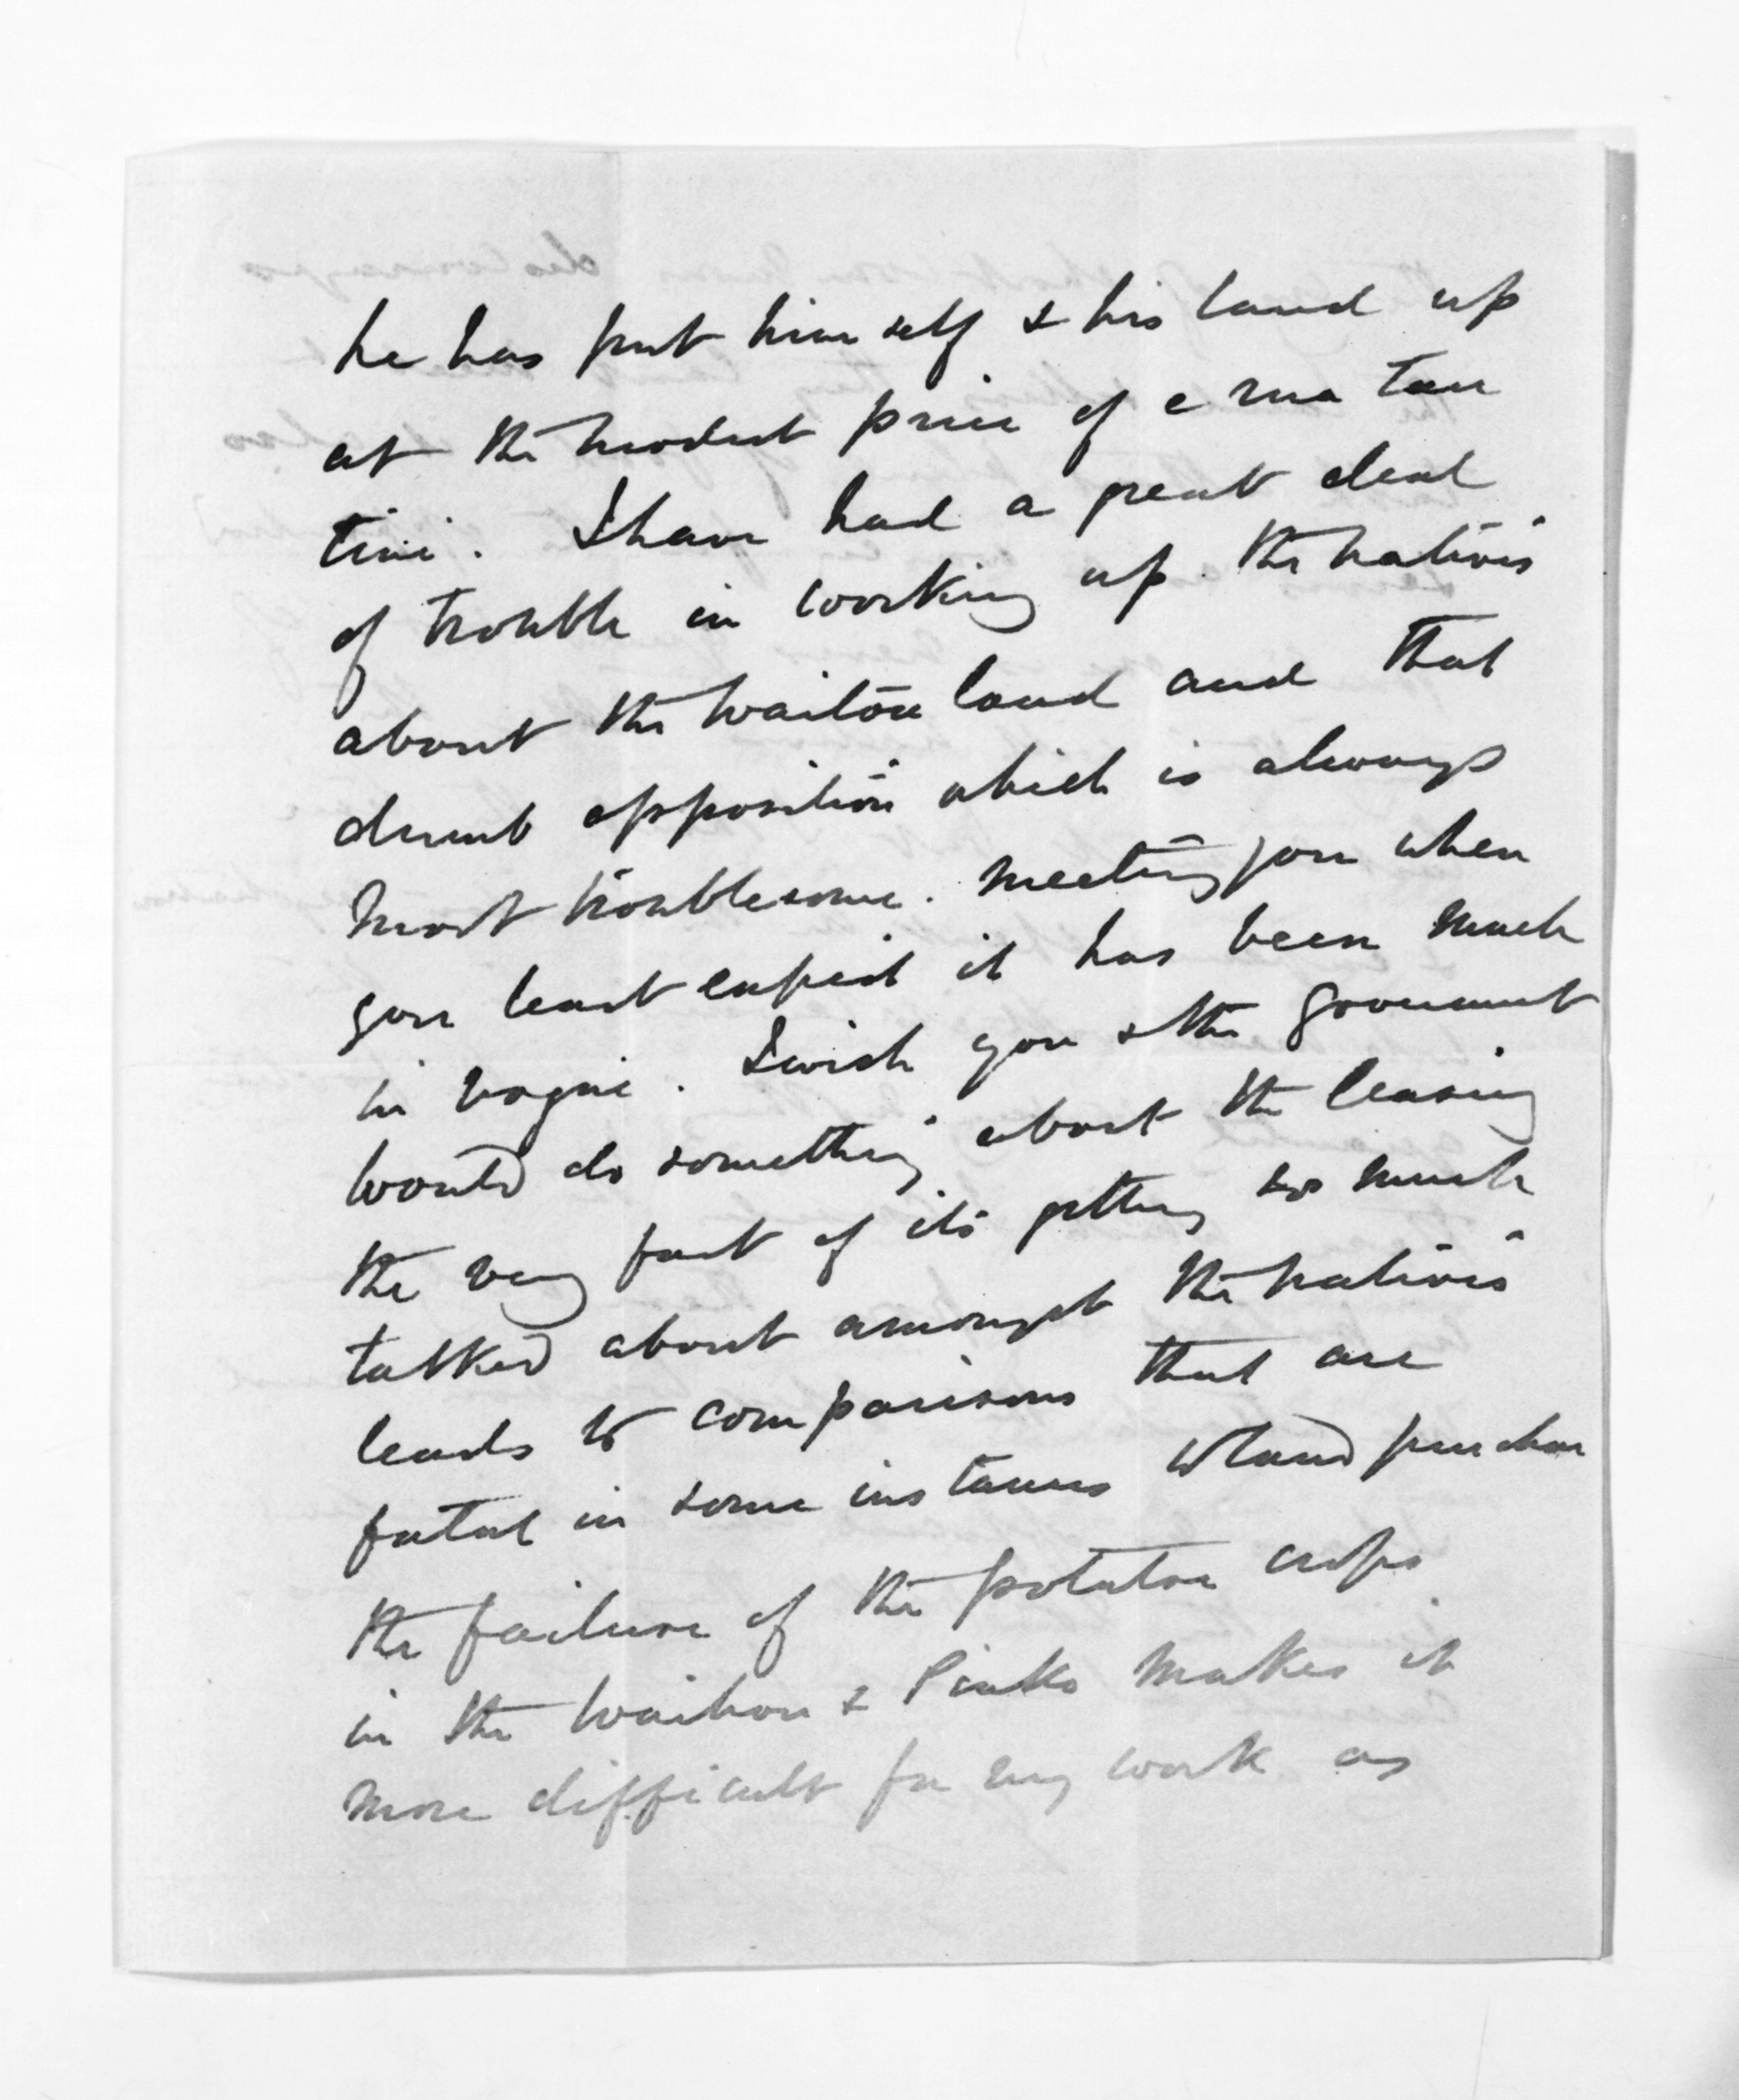 he has put himself & his land up
at the modest price of e rua tau
tini. I have had a great deal
of trouble in working up the natives
about the Waitoa land and that
dumb opposition which is always
most troublesome. meeting you when
you least expect it has been much
in vogue. I wish you & the Government
would do something about the leasing
the very fact of its getting so much
talked about amongst the natives
leads to comparisons that are
fatal in some instances to land purchase
the failure of the potatoe crops
in the Waihou & Piako makes it
more difficult for my work as